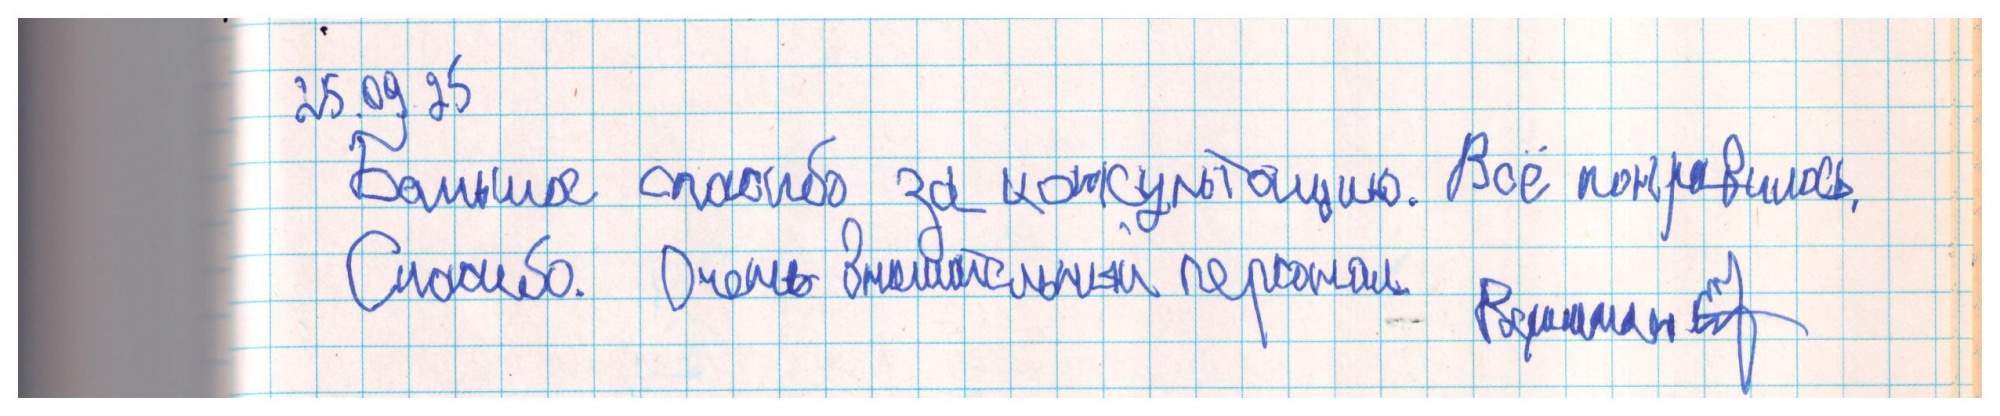 25.09.25
Большое спасибо за консультацию. Всё понравилось.
Спасибо. Очень внимательный персонал.